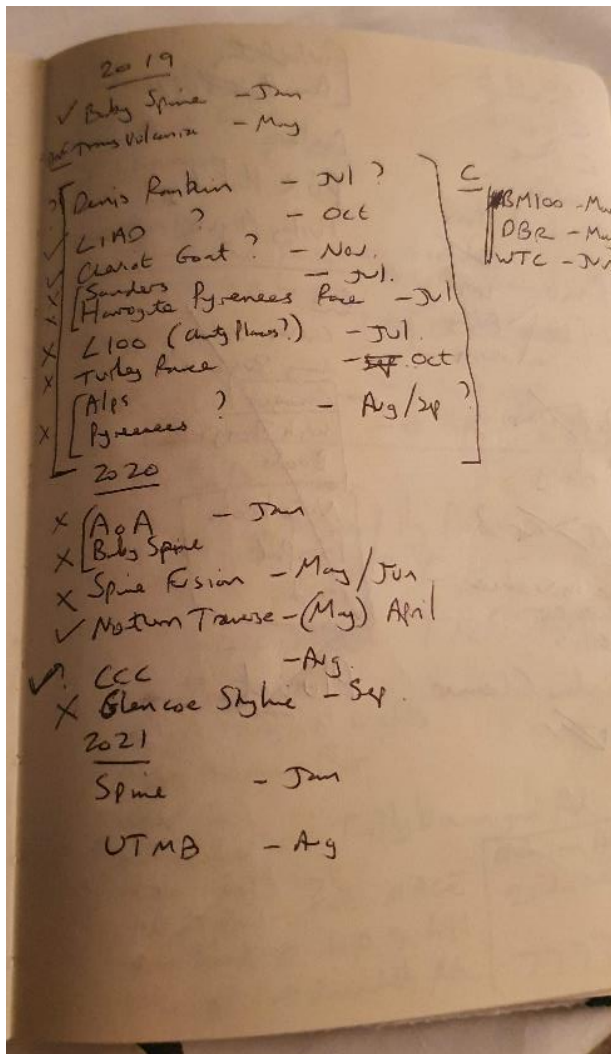 2019
✓ Baby Spine - Jan
Transvulcania - May
? Denis Rankin - Jul ?
✓ LIAD ? - Oct
✓ Cheviot Goat ? - Nov.
X Saunders - Jul.
X Harrogate Pyrenees Race - Jul
X L100 (Charity Places?) - Jul.
X Turkey Race - Sep. Oct
Alps
X Pyrenees ? - Aug/Sep ?
C
BM100 - Ma
DBR - Ma
WTC - Jun
2020
X AoA - Jan
X Baby Spine
X Spine Fusion - May/Jun
✓ Northern Traverse - (May) April
✓? CCC - Aug.
X Glencoe Skyline - Sep.
2021
Spine - Jan
UTMB - Aug